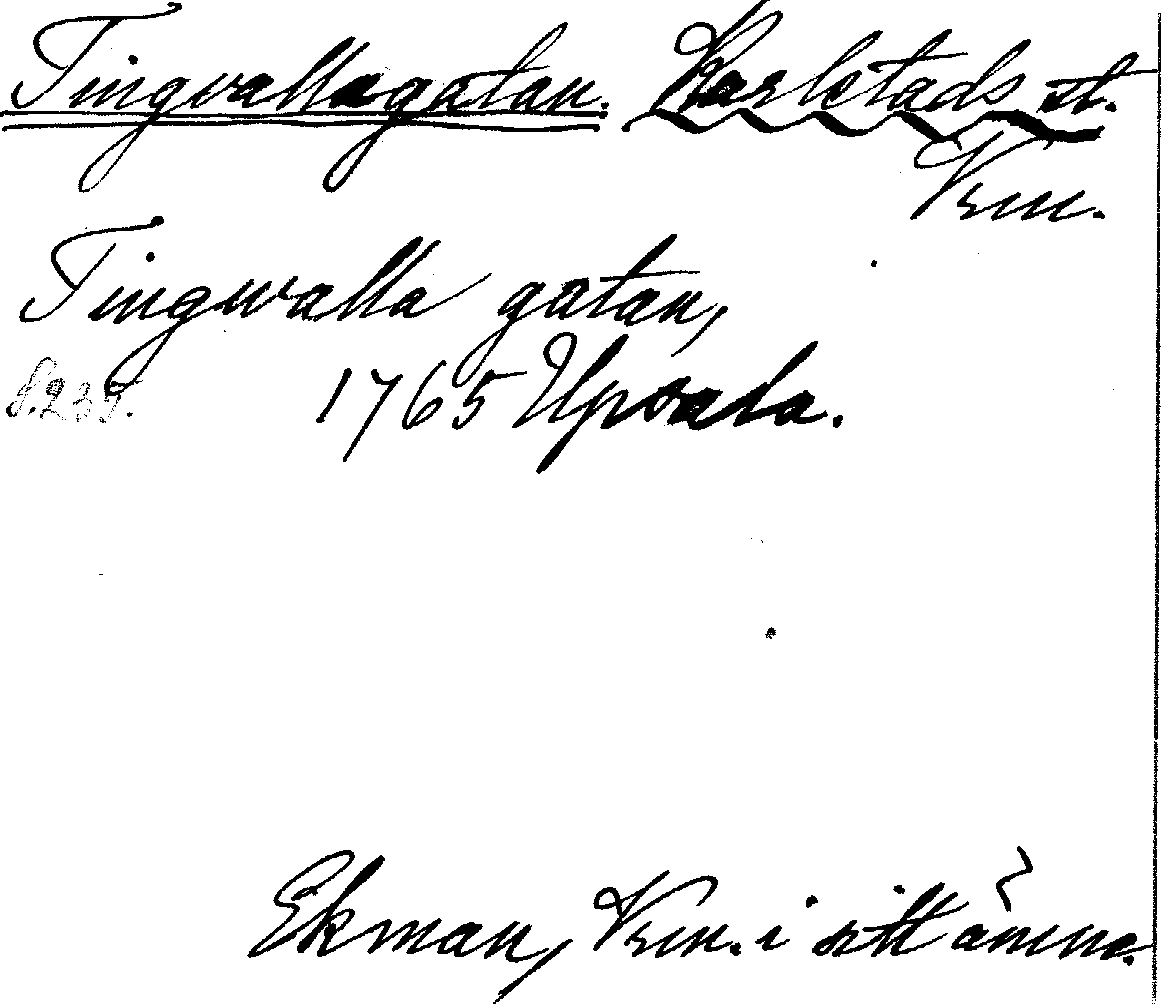 Tingvallagatan. Karlstads st.
Vrm.
Tingwalla gatan,
s. 239. 1765 Upsala.
Ekman, Vrm. i sitt ämne.